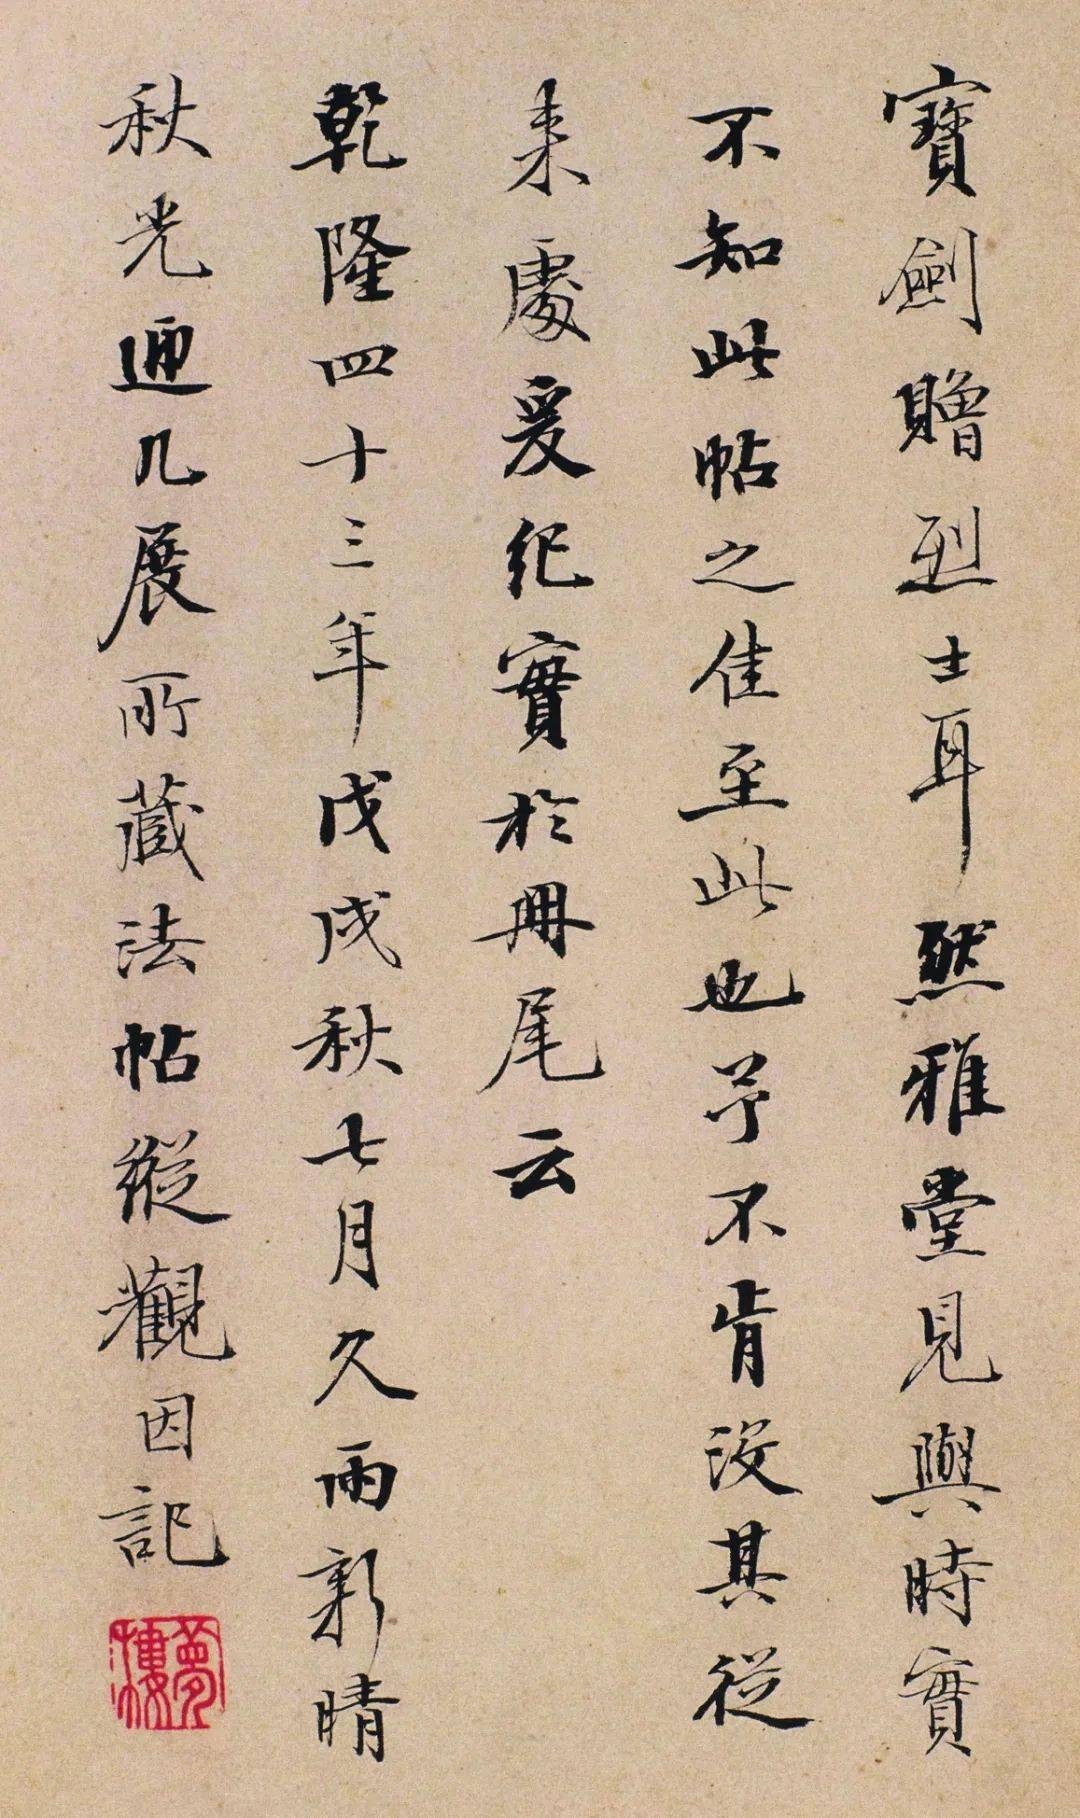 寶劍贈烈士耳然雅堂見與時實
不知此帖之佳至此也予不肯沒其從
来處爰纪實於冊尾云
乾隆四十三年戊戌秋七月久雨新晴
秋光逥几展所藏法帖縱觀因記
夢樓